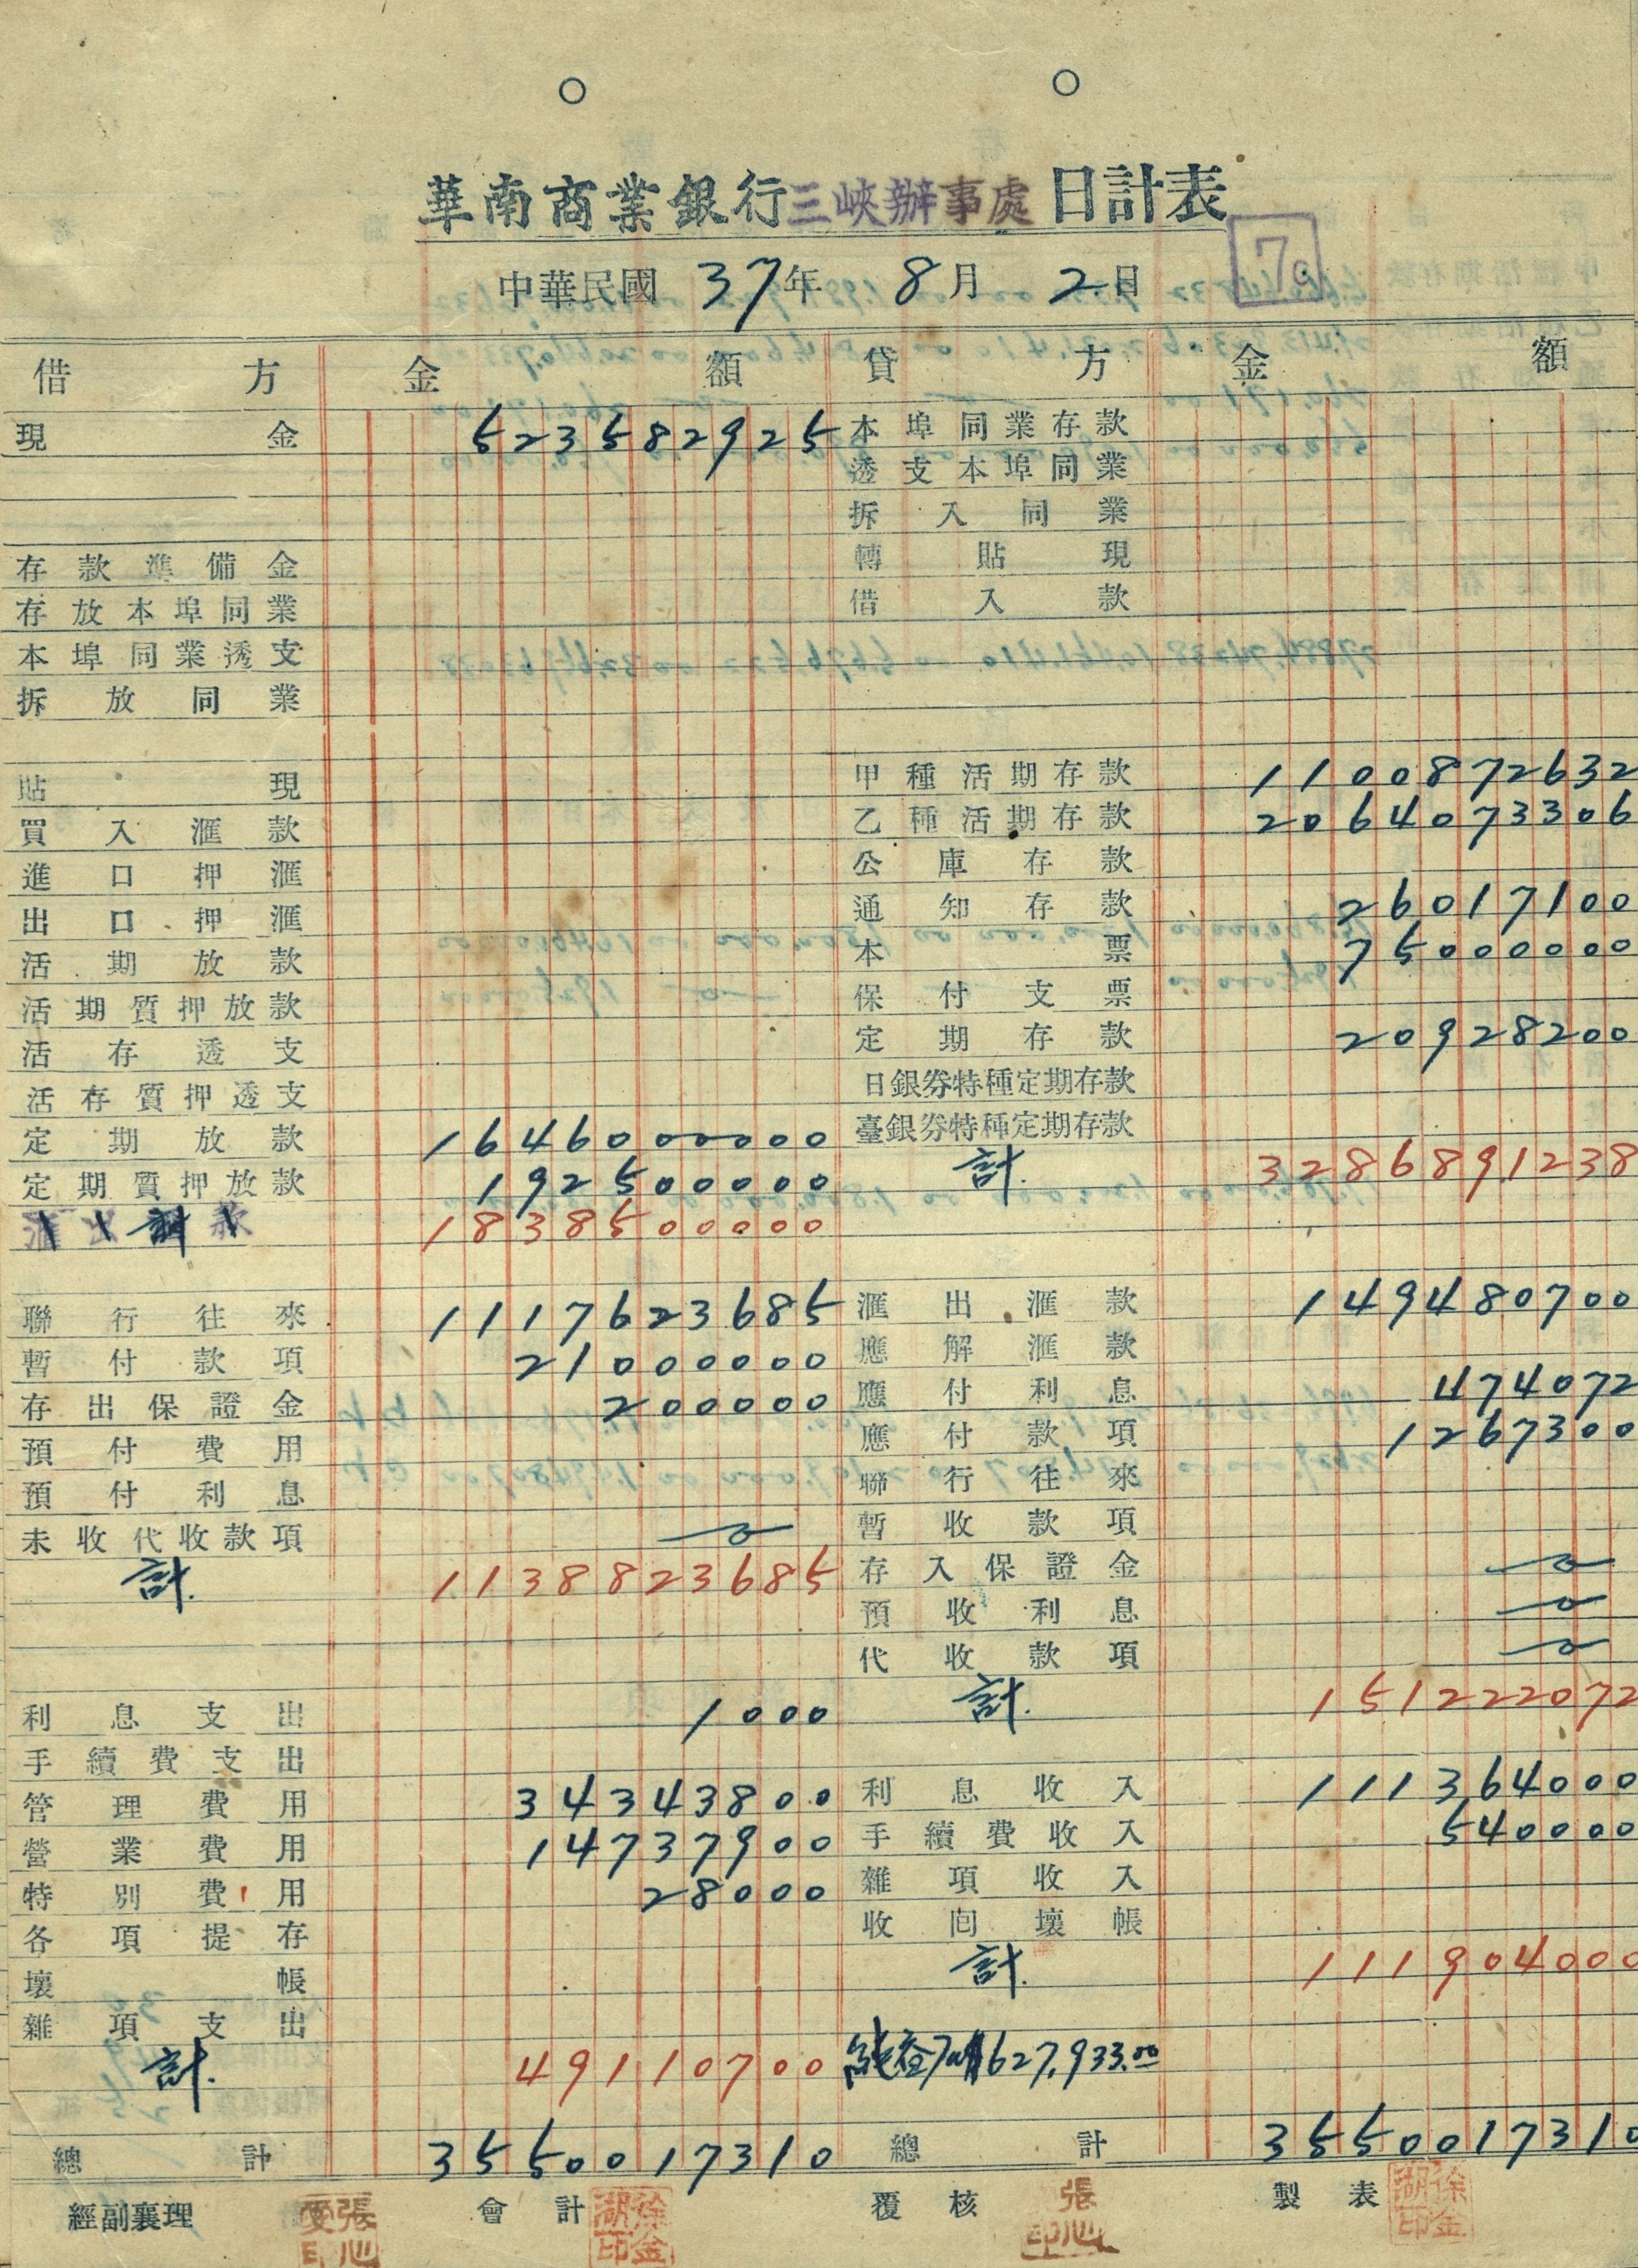 華南商業銀行三峽辦事處日計表
7
中華民國 37年 8月 2日
借方 金額 貸方 金額
現金 523582925 本埠同業存款
透支本埠同業
拆入同業
存款準備金 轉貼現
存放本埠同業 借入款
本埠同業透支
拆放同業
貼現 甲種活期存款 1100872632
買入滙款 乙種活期存款 2064073306
進口押滙 公庫存款
出口押滙 通知存款 26017100
活期放款 本票 75000000
活期質押放款 保付支票
活存透支 定期存款 20928200
活存質押透支 日銀券特種定期存款
定期放款 1646000000 臺銀券特種定期存款
定期質押放款 192500000 計. 3286891238
計 1838500000
聯行往來 1117623685 滙出滙款 149480700
暫付款項 21000000 應解滙款
存出保證金 200000 應付利息 474072
預付費用 應付款項 1267300
預付利息 聯行往來
未收代收款項 0 暫收款項
計. 1138823685 存入保證金 0
預收利息 0
代收款項 0
利息支出 1000 計. 151222072
手續費支出
管理費用 34343800 利息收入 111364000
營業費用 14737900 手續費收入 540000
特別費用 28000 雜項收入
各項提存 收囘壞帳
壞帳 計. 111904000
雜項支出
計. 49110700 627,933.00
總計 3550017310 總計 3550017310
經副襄理 會計 徐金湖印 覆核 製表 徐金湖印